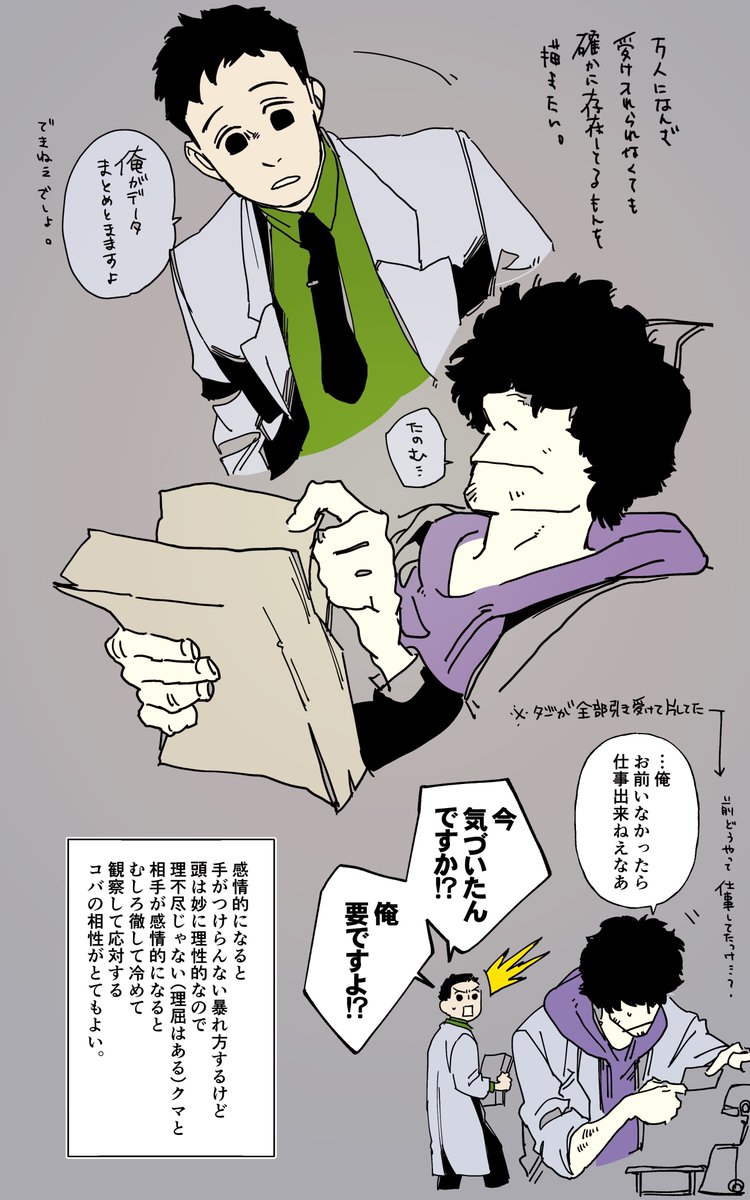 万人になんぞ
受け入れられなくても
確かに存在してるもんを
描きたい。
俺がデータ
まとめときますよ
できねぇでしょ。
たのむ…
※タジが全部引き受けて片してた
…俺
お前いなかったら
仕事出来ねえなあ
前どうやって仕事してたっけ…?
今
気づいたん
ですか!?
俺
要ですよ!?
感情的になると
手がつけらんない暴れ方するけど
頭は妙に理性的なので
理不尽じゃない(理屈はある)クマと
相手が感情的になると
むしろ徹して冷めて
観察して応対する
コバの相性がとてもよい。